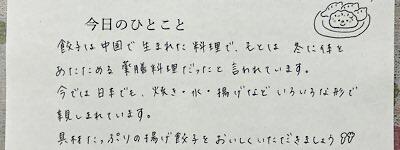 今日のひとこと
餃子は中国で生まれた料理で、もとは 冬に体を
あたためる薬膳料理だったと言われています。
今では日本でも、炊き・水・揚げなどいろいろな形で
親しまれています。
具材たっぷりの揚げ餃子をおいしくいただきましょう♡♡